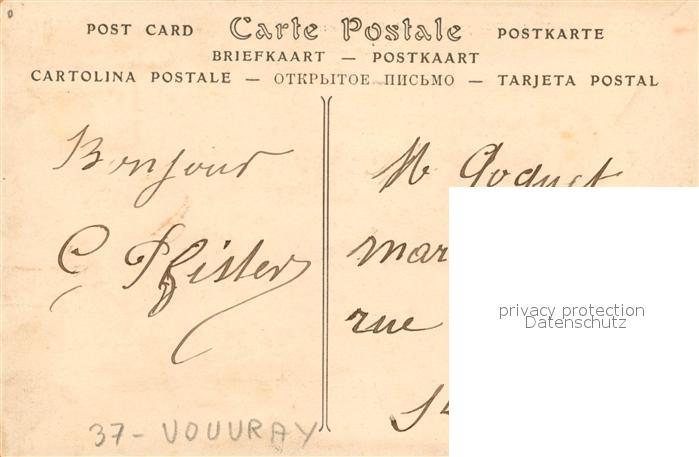 POST CARD Carte Postale POSTKARTE
BRIEFKAART — POSTKAART
CARTOLINA POSTALE — ОТКРЫТОЕ ПИСЬМО — TARJETA POSTAL
Bonjour
C Pfister
M Goguet
mar
rue
37 - VOUVRAY
privacy protection
Datenschutz